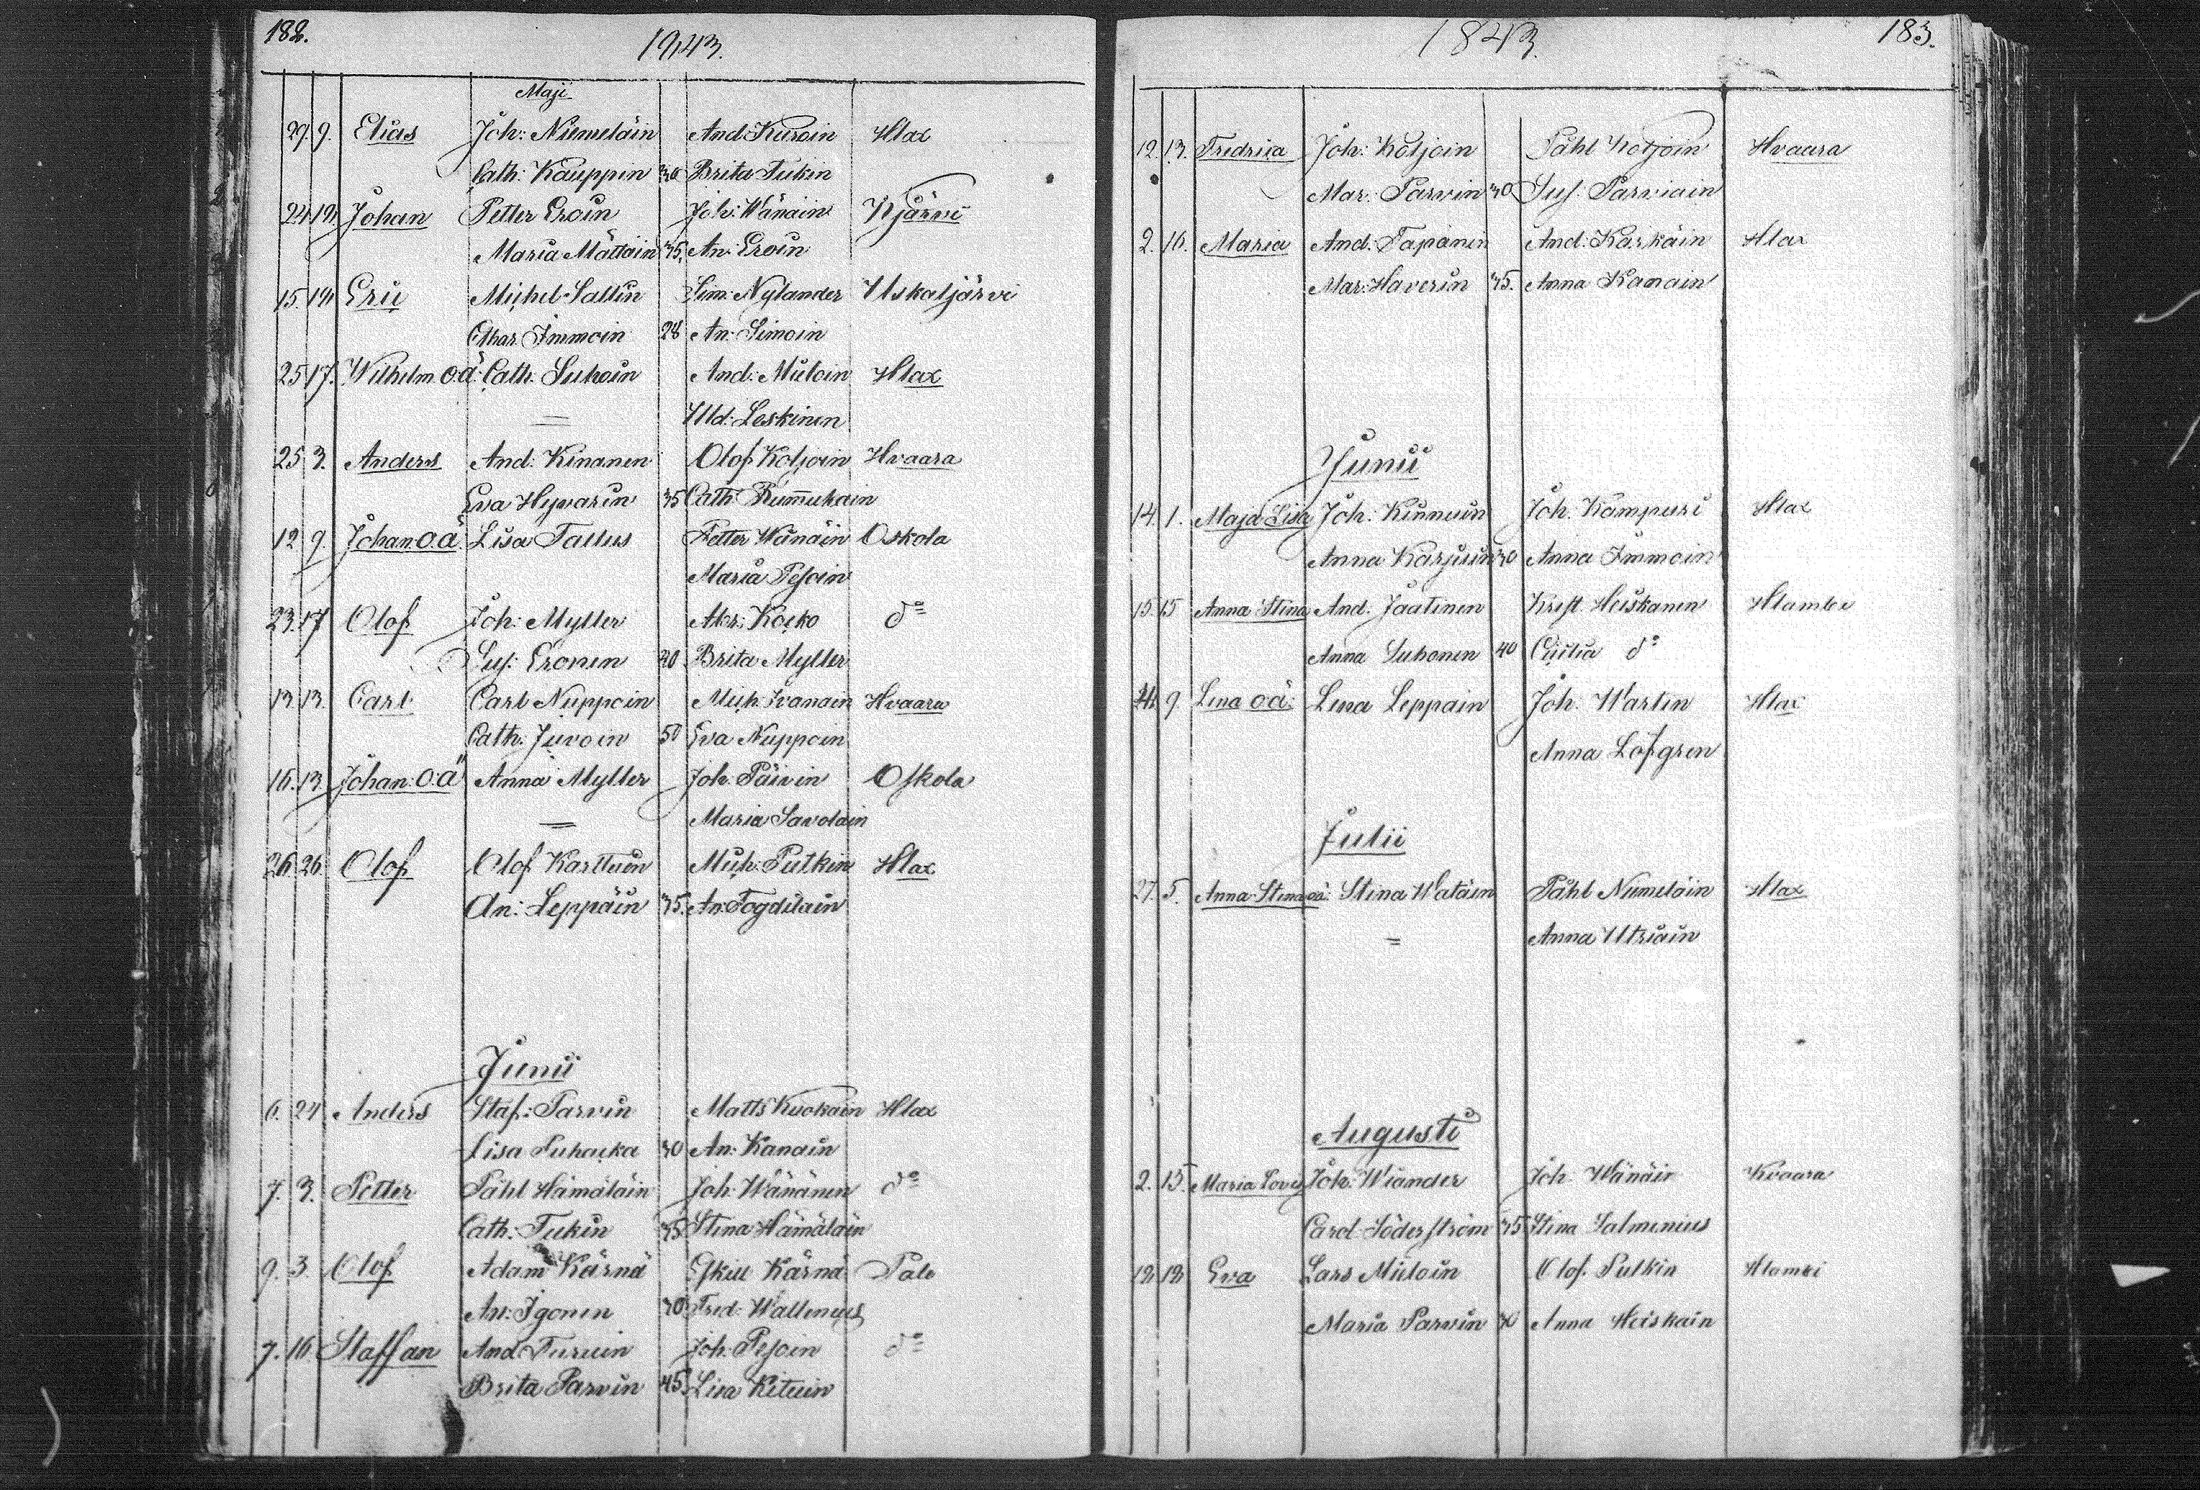 182.
1843.
Maji
29. 9. Elias Joh: Niemeläin And: Kuroin Hlax
Cath: Kauppin 30 Brita Tukin
24 12 Johan Petter Eroin Joh: Wänäin Kjärvi
Maria Mättäin 35. An: Eroin
15. 12 Eric Michel Sallin Sim: Nylander Uskaljärvi
Cthar. Immoin 28 An: Simoin
25 17. Wilhelm o.ä: Cath: Suhoin And: Miiloin Hlax
= Uld: Leskinen
25 3. Anders And: Kinanen Olof Koljoin Hvaara
Eva Hyvärin 35 Cath: Rummukain
12 9. Johan o.ä. Lisa Tallus Petter Wänäin Oskola
Maria Pesoin
23. 17 Olof Joh: Myller Alex: Kocko d:o
Sus: Eronen 40 Brita Myller
13. 13. Carl Carl Nuppoin Mich: Ivanain Hvaara
Cath. Juvoin 50 Eva Nuppoin
16. 13. Johan: o.ä Anna Myller Joh: Päivin Oskola
= Maria Savolain
26. 26. Olof Olof Karttuin Mich: Putkin Hlax
An: Leppäin 35. An: Fogdelain
Junii
6. 24 Anders Staf: Parvin Matts Kuokain Hlax
Lisa Puhacka 30 An: Kanain
7. 3. Petter Påhl Hämäläin Joh: Wänänen d:o
Cath: Tukin 35 Stina Hämäläin
9. 3. Olof Adam Kärnä Eskill Kärnä Palo
An: Igonen 30 Fred: Wallenius
7. 16 Staffan And: Turuin Joh: Pesoin d:o
Brita Parvin 45. Lisa Kituin
1843.
183.
12. 13. Fredrica Joh: Koljoin Påhl Koljoin Hvaara
Mar: Parvin 30 Sus: Parviain
2. 16. Maria And: Tapanin And: Karkäin Hlax
Mar: Haverin 35. Anna Kanain
Junii
14. 1. Maja Lisa Joh: Kinnuin Joh. Kämpuri Hlax
Anna Karjuin 30 Anna Immoin
15. 15 Anna Stina And. Jäätinen Krist. Heiskanen Hlambi
Anna Suhonen 40 Cicilia d:o
9. Lena o.ä: Lena Leppäin Joh: Wartin Hlax
Anna Löfgren
Julii
27. 5. Anna Stina o.ä: Stina Watäin Påhl Niemeläin Hlax
= Anna Utriain
Augusti
2. 15. Maria Lovis Joh: Wiander Joh. Wänäin Kvaara
Carol. Söderström 35 Stina Salmenius
12 12 Eva Lars Miiloin Olof Pulkin Hlambi
Maria Parvin 30 Anna Heiskain